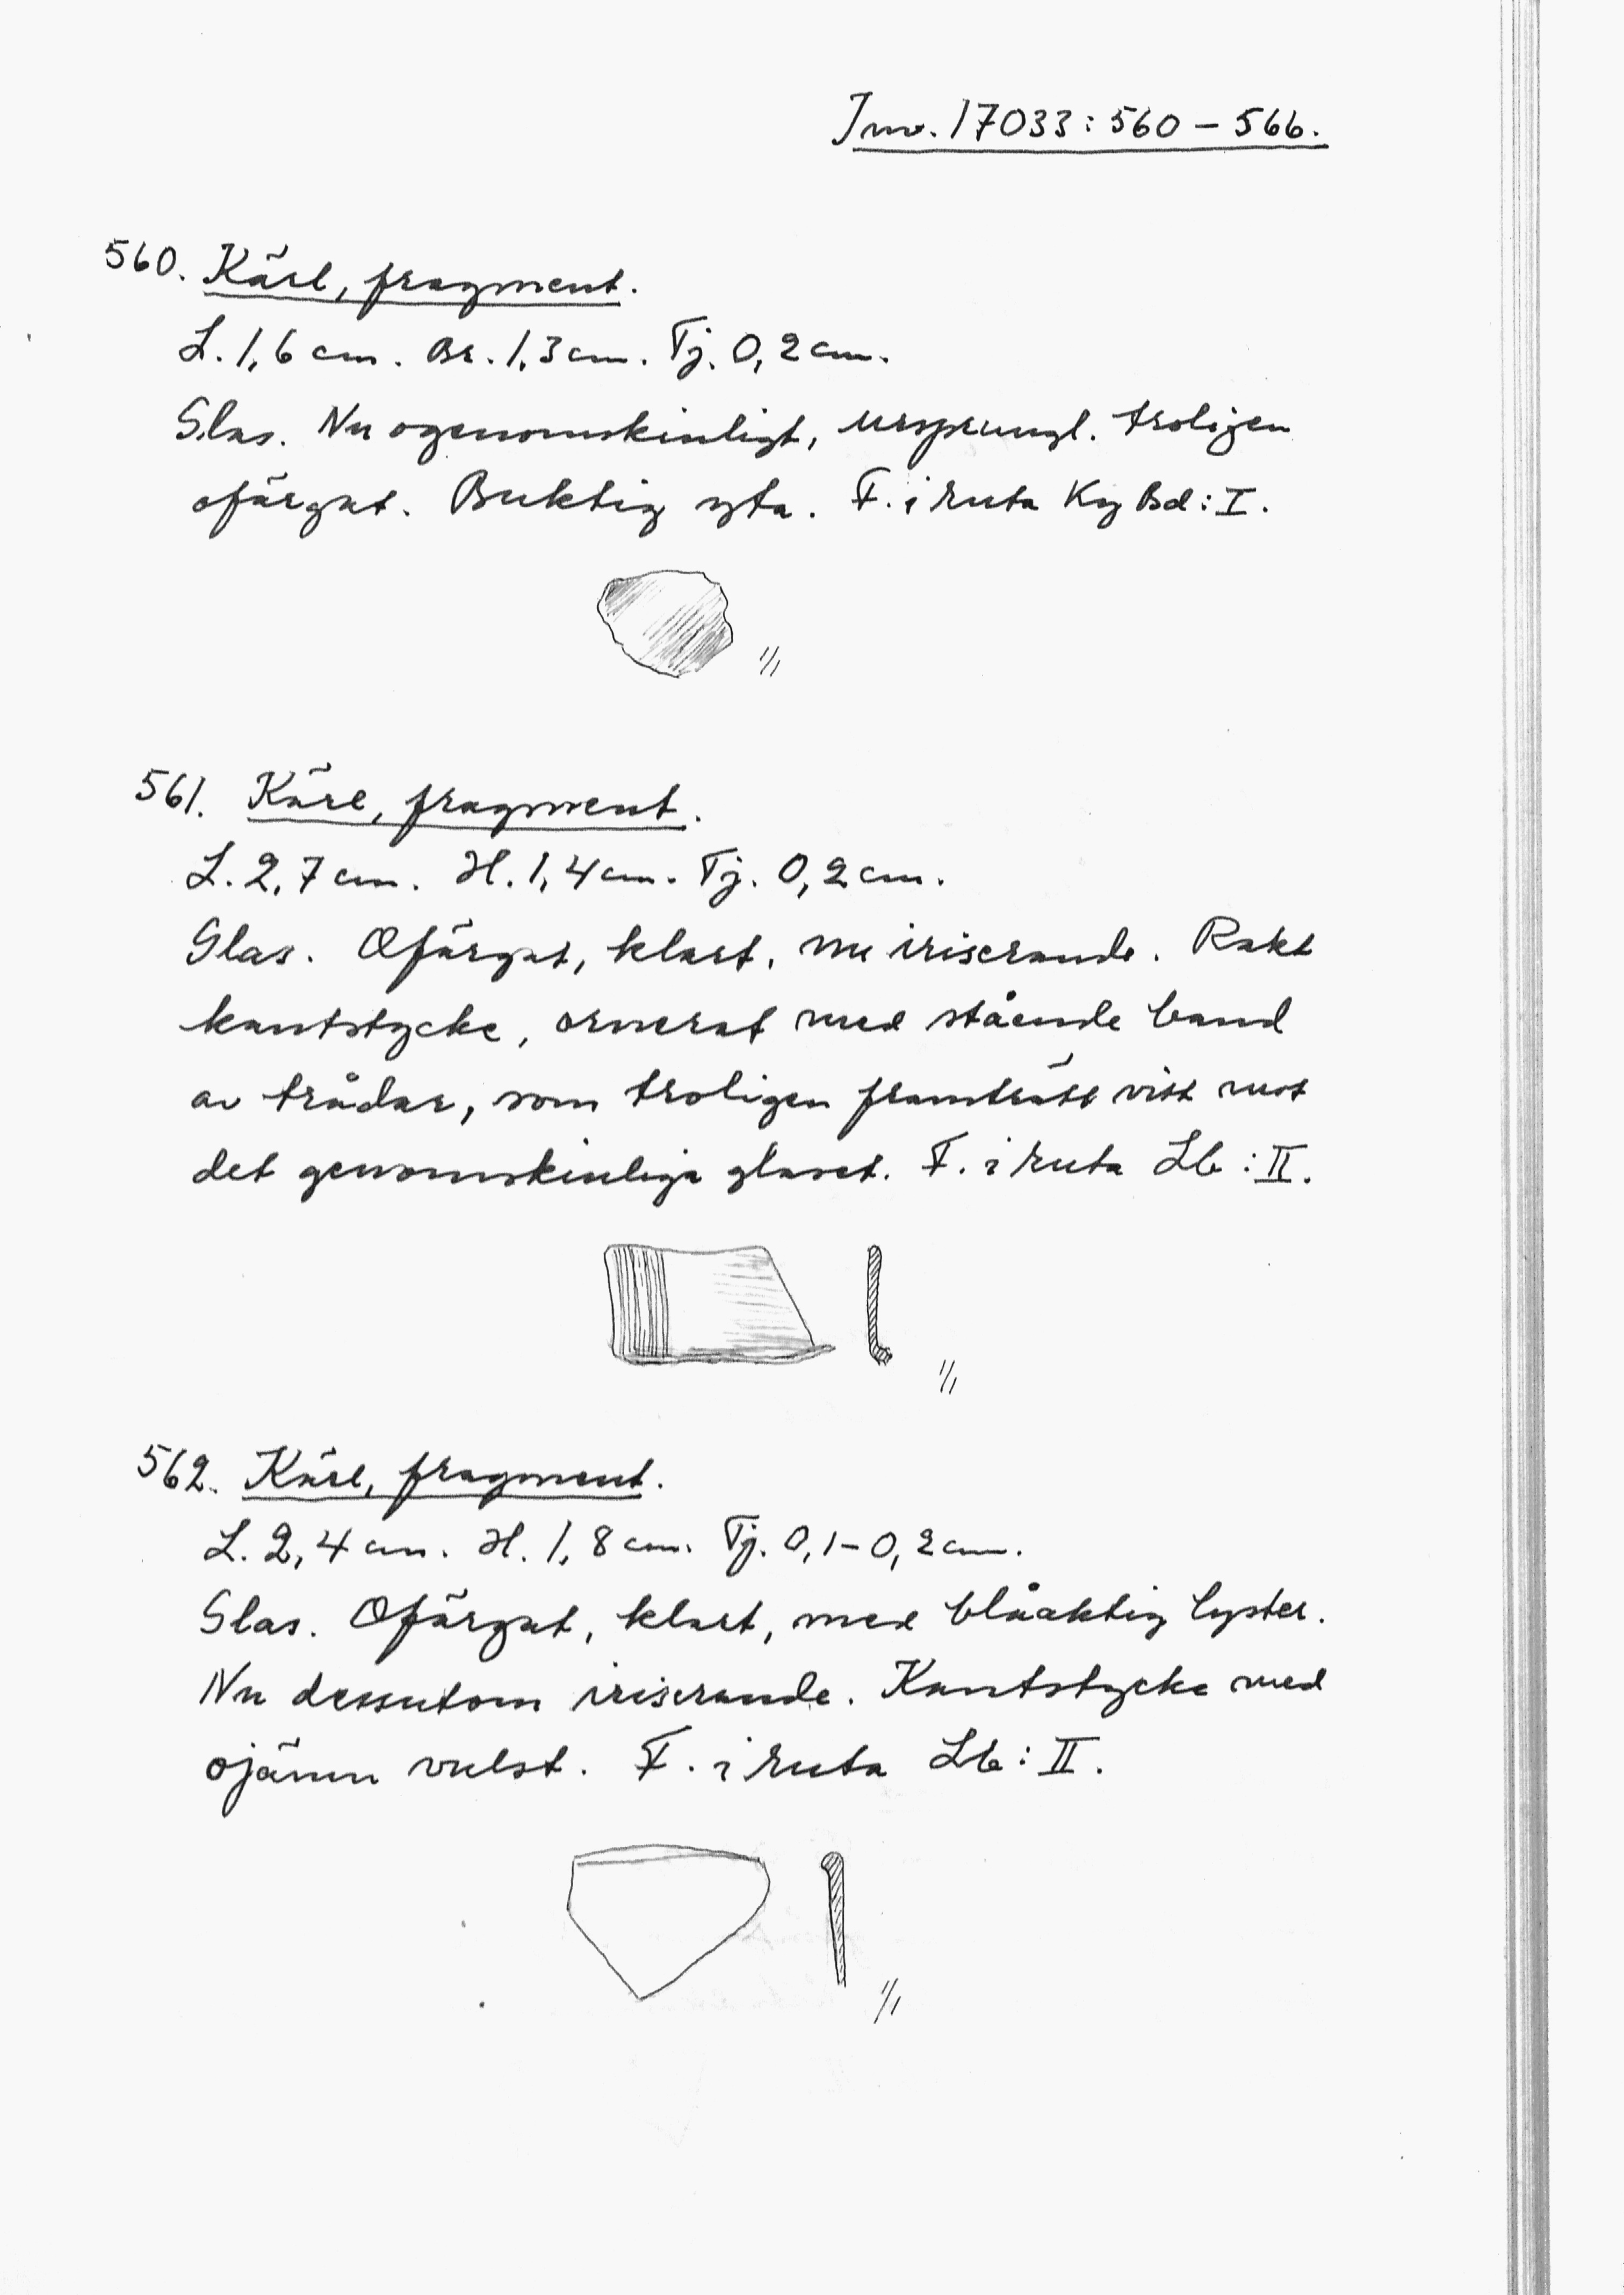 Inv. 17033:560-566.
560. Kärl, fragment.
L. 1,6 cm. Br. 1,3 cm. Tj. 0,2 cm.
Glas. Nu ogenomskinligt, ursprungl. troligen
ofärgat. Buktig yta. F. i ruta Kg Bd:I.
1/1
561. Kärl, fragment.
L. 2,7 cm. H. 1,4 cm. Tj. 0,2 cm.
Glas. Ofärgat, klart, nu iriserande. Rakt
kantstycke, ornerat med stående band
av trådar, som troligen framträtt vitt mot
det genomskinliga glaset. F. i ruta Lb:II.
1/1
562. Kärl, fragment.
L. 2,4 cm. H. 1,8 cm. Tj. 0,1-0,2 cm.
Glas. Ofärgat, klart, med blåaktig lyster.
Nu dessutom iriserande. Kantstycke med
ojämn vulst. F. i ruta Lb:II.
1/1